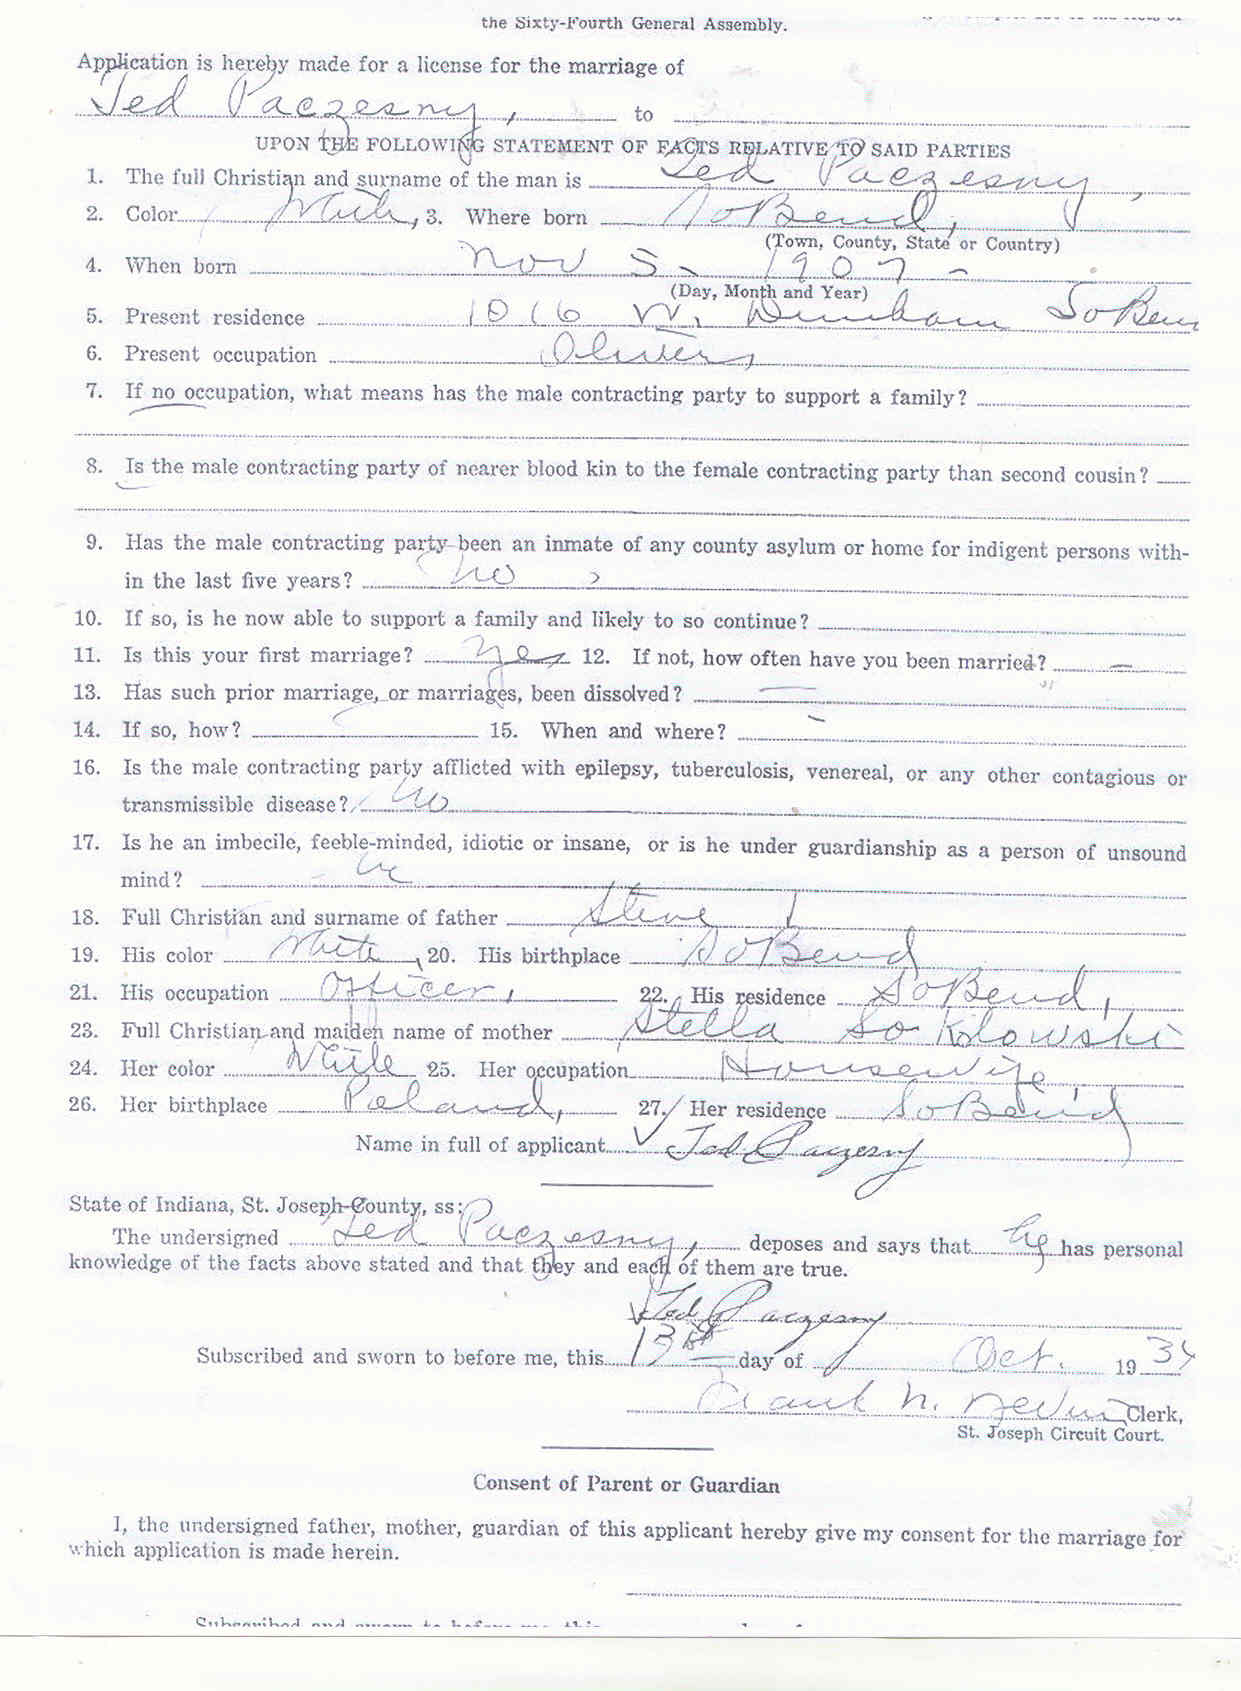 the Sixty-Fourth General Assembly.
Application is hereby made for a license for the marriage of
Ted Paczesny, to
UPON THE FOLLOWING STATEMENT OF FACTS RELATIVE TO SAID PARTIES
1. The full Christian and surname of the man is Ted Paczesny,
2. Color White, 3. Where born So Bend,
(Town, County, State or Country)
4. When born Nov 5- 1907-
(Day, Month and Year)
5. Present residence 1016 W. Dunham So Bend
6. Present occupation
7. If no occupation, what means has the male contracting party to support a family?
8. Is the male contracting party of nearer blood kin to the female contracting party than second cousin?
9. Has the male contracting party been an inmate of any county asylum or home for indigent persons with-
in the last five years? no
10. If so, is he now able to support a family and likely to so continue?
11. Is this your first marriage? Yes 12. If not, how often have you been married? —
13. Has such prior marriage, or marriages, been dissolved? —
14. If so, how? 15. When and where? -
16. Is the male contracting party afflicted with epilepsy, tuberculosis, venereal, or any other contagious or
transmissible disease? no
17. Is he an imbecile, feeble-minded, idiotic or insane, or is he under guardianship as a person of unsound
mind?
18. Full Christian and surname of father Steve
19. His color White, 20. His birthplace So Bend
21. His occupation Officer, 22. His residence So Bend,
23. Full Christian and maiden name of mother Stella Sokolowski
24. Her color White 25. Her occupation Housewife,
26. Her birthplace Poland, 27. Her residence So Bend
Name in full of applicant Ted Paczesny
State of Indiana, St. Joseph County, ss:
The undersigned Ted Paczesny, deposes and says that he has personal
knowledge of the facts above stated and that they and each of them are true.
Ted Paczesny
Subscribed and sworn to before me, this 13 day of Oct. 1934
Frank N. Clerk,
St. Joseph Circuit Court.
Consent of Parent or Guardian
I, the undersigned father, mother, guardian of this applicant hereby give my consent for the marriage for
which application is made herein.
Subscribed and sworn to before me this